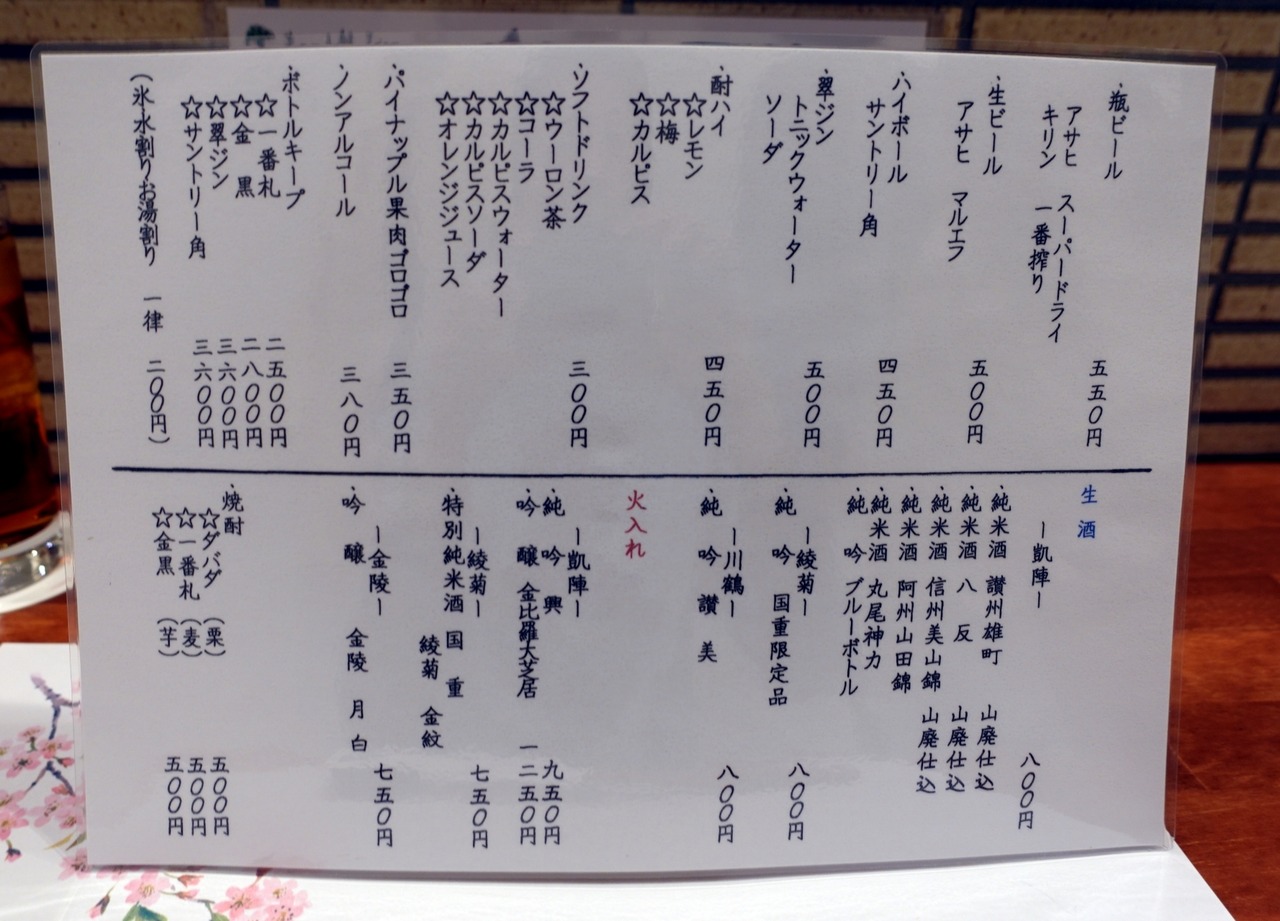 ・瓶ビール
アサヒ スーパードライ
キリン 一番搾り
五五〇円
・生ビール
アサヒ マルエフ
五〇〇円
・ハイボール
サントリー角
四五〇円
・翠ジン
トニックウォーター
ソーダ
五〇〇円
・酎ハイ
☆レモン
☆梅
☆カルピス
四五〇円
・ソフトドリンク
☆ウーロン茶
☆コーラ
☆カルピスウォーター
☆カルピスソーダ
☆オレンジジュース
三〇〇円
・パイナップル果肉ゴロゴロ 三五〇円
・ノンアルコール 三八〇円
・ボトルキープ
☆一番札 二五〇〇円
☆金 黒 二八〇〇円
☆翠ジン 三六〇〇円
☆サントリー角 三六〇〇円
（氷水割りお湯割り 一律 二〇〇円）
生 酒
ー凱陣ー
八〇〇円
・純米酒 讃州雄町 山廃仕込
・純米酒 八 反 山廃仕込
・純米酒 信州美山錦 山廃仕込
・純米酒 阿州山田錦
・純米酒 丸尾神力
・純 吟 ブルーボトル
ー綾菊ー
・純 吟 国重限定品
八〇〇円
ー川鶴ー
・純 吟 讃 美
八〇〇円
火入れ
ー凱陣ー
・純 吟 興 九五〇円
・吟 醸 金比羅大芝居 一二五〇円
ー綾菊ー
・特別純米酒 国 重
綾菊 金紋
七五〇円
ー金陵ー
・吟 醸 金陵 月 白
七五〇円
・焼酎
☆ダバダ （栗） 五〇〇円
☆一番札 （麦） 五〇〇円
☆金黒 （芋） 五〇〇円